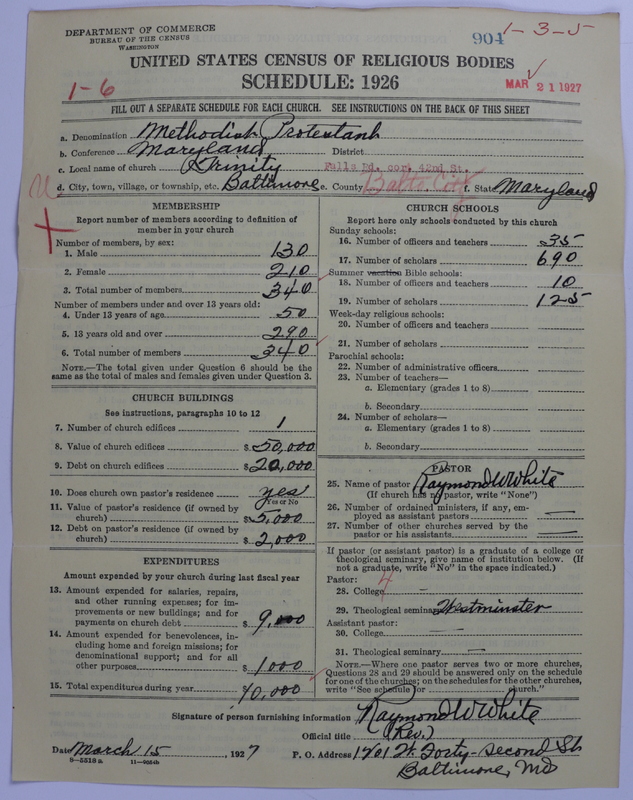 DEPARTMENT OF COMMERCE
BUREAU OF THE CENSUS
WASHINGTON
904
1-3-5
UNITED STATES CENSUS OF RELIGIOUS BODIES
SCHEDULE: 1926
1-6
MAR 21 1927
FILL OUT A SEPARATE SCHEDULE FOR EACH CHURCH. SEE INSTRUCTIONS ON THE BACK OF THIS SHEET
a. Denomination Methodist Protestant
b. Conference Maryland District
c. Local name of church Trinity Falls Rd. cor. 42nd St.
d. City, town, village, or township, etc. Baltimore e. County Balto City f. State Maryland
MEMBERSHIP
Report number of members according to definition of
member in your church
Number of members, by sex:
1. Male 130
2. Female 210
3. Total number of members 340
Number of members under and over 13 years old:
4. Under 13 years of age 50
5. 13 years old and over 290
6. Total number of members 340
NOTE.—The total given under Question 6 should be the
same as the total of males and females given under Question 3.
CHURCH BUILDINGS
See instructions, paragraphs 10 to 12
7. Number of church edifices 1
8. Value of church edifices $50,000
9. Debt on church edifices $20,000
10. Does church own pastor's residence yes
Yes or No
11. Value of pastor's residence (if owned by
church) $5,000
12. Debt on pastor's residence (if owned by
church) $2,000
EXPENDITURES
Amount expended by your church during last fiscal year
13. Amount expended for salaries, repairs,
and other running expenses; for im-
provements or new buildings; and for
payments on church debt $9,000
14. Amount expended for benevolences, in-
cluding home and foreign missions; for
denominational support; and for all
other purposes $1000
15. Total expenditures during year 10,000
CHURCH SCHOOLS
Report here only schools conducted by this church
Sunday schools:
16. Number of officers and teachers 35
17. Number of scholars 690
Summer vacation Bible schools:
18. Number of officers and teachers 10
19. Number of scholars 125
Week-day religious schools:
20. Number of officers and teachers
21. Number of scholars
Parochial schools:
22. Number of administrative officers
23. Number of teachers—
a. Elementary (grades 1 to 8)
b. Secondary
24. Number of scholars—
a. Elementary (grades 1 to 8)
b. Secondary
PASTOR
25. Name of pastor Raymond W White
(If church has no pastor, write "None")
26. Number of ordained ministers, if any, em-
ployed as assistant pastors —
27. Number of other churches served by the
pastor or his assistants —
If pastor (or assistant pastor) is a graduate of a college or
theological seminary, give name of institution below. (If
not a graduate, write "No" in the space indicated.)
Pastor: 4
28. College —
29. Theological seminary Westminster
Assistant pastor:
30. College —
31. Theological seminary —
NOTE.—Where one pastor serves two or more churches,
Questions 28 and 29 should be answered only on the schedule
for one of the churches; on the schedules for the other churches,
write "See schedule for church."
Signature of person furnishing information Raymond W White
Official title (Rev.)
Date March 15, 1927 P. O. Address 1701 W. Forty-second St
8—5518 a 11—9554b Baltimore, Md